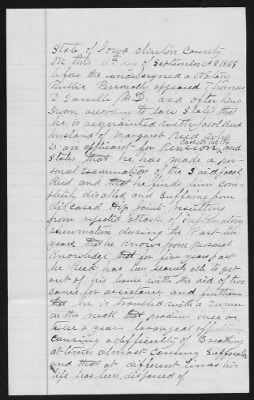 State of Iowa Clinton County
On this 11th day of September A D 1888
before the undersigned a Notary
Public Personally appeared Thomas
D Gamble M.D. and after being
Sworn according to law States that
he is acquainted with Jacob Reed
husband of Margaret Reed who
is an applicant for Pension and
States that he has made a per
sonal examination of the said Jacob
Reed and that he finds him com
pletely disabled and Suffering from
diseased Hip joint resulting
from repeated attacks of inflamatory
rheumatism during the Past ten
years that he knows from Personal
Knowledge that for five years past
he Reed has been scarcely able to get
out of his house with the aid of two
canes for assistance and further
that he is troubled with a
in the neck that produces once or
twice a year laryngeal
causing a difficulty of Breathing
at times almost Causing Suffocation
and that at different times his
life has been despaired of